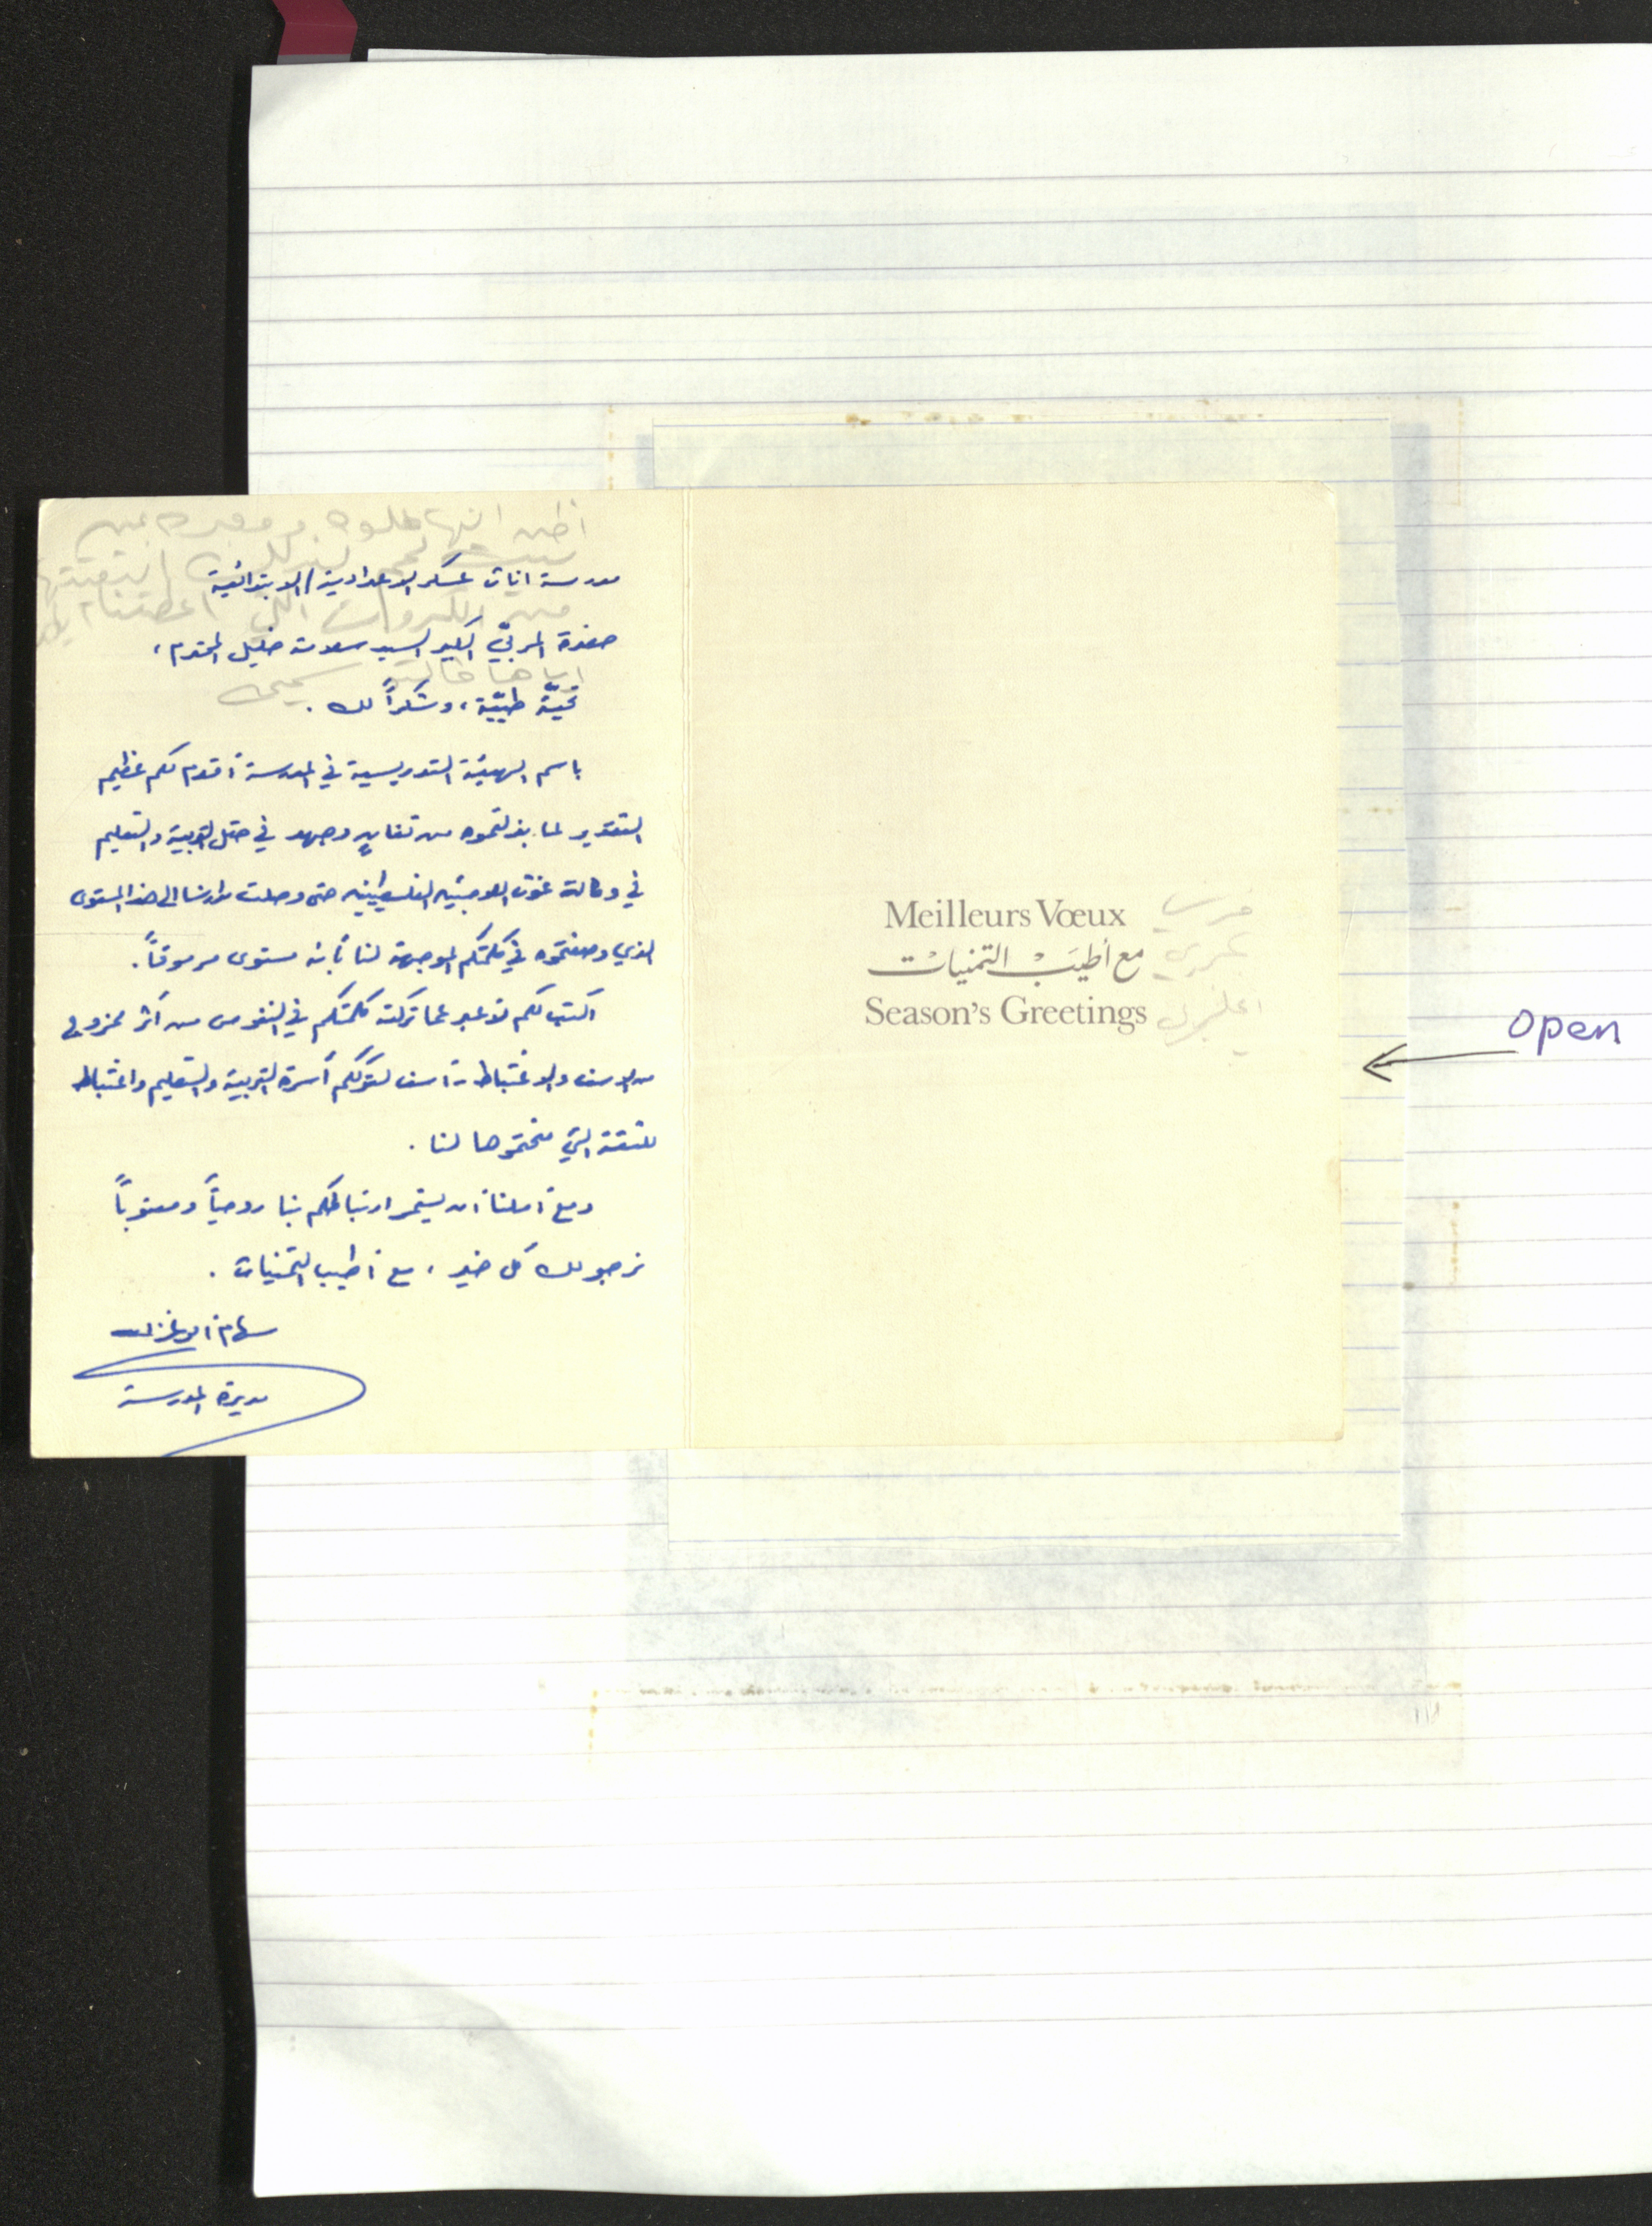 أظن انها حلوه ومعبره عن
مدرسة اناث عسكر الاعدادية/الابتدائية
حضرة المربيّ الكبير السيد سلامة خليل المحترم،
تحيّة طيّبة، وشكراً لك.
باسم الهيئة التدريسية في المدرسة أقدم لكم عظيم
التقدير لما بذلتموه من تفانٍ وجهد في حقل التربية والتعليم
في وكالة غوث اللاجئين الفلسطينين حتى وصلت مدارسنا الى هذا المستوى
الذي وصفتموه في كلمتكم الموجهة لنا بأنه مستوى مرموقاً.
اكتب لكم لأعبر عما تركته كلمتكم في النفوس من أثر ممزوج
من الاسف والاغتباط - أسف لترككم أسرة التربية والتعليم واغتباط
للثقة التي منحتموها لنا.
ومع أملنا أن يستمر ارتباطكم بنا روحياً ومعنوياً
نرجو لك كل خير، مع أطيب التمنيات.
سهام أبو غزالة
مديرة المدرسة
Meilleurs Vœux
مع أطيَبْ التمنياتْ عربي
Season's Greetings
open